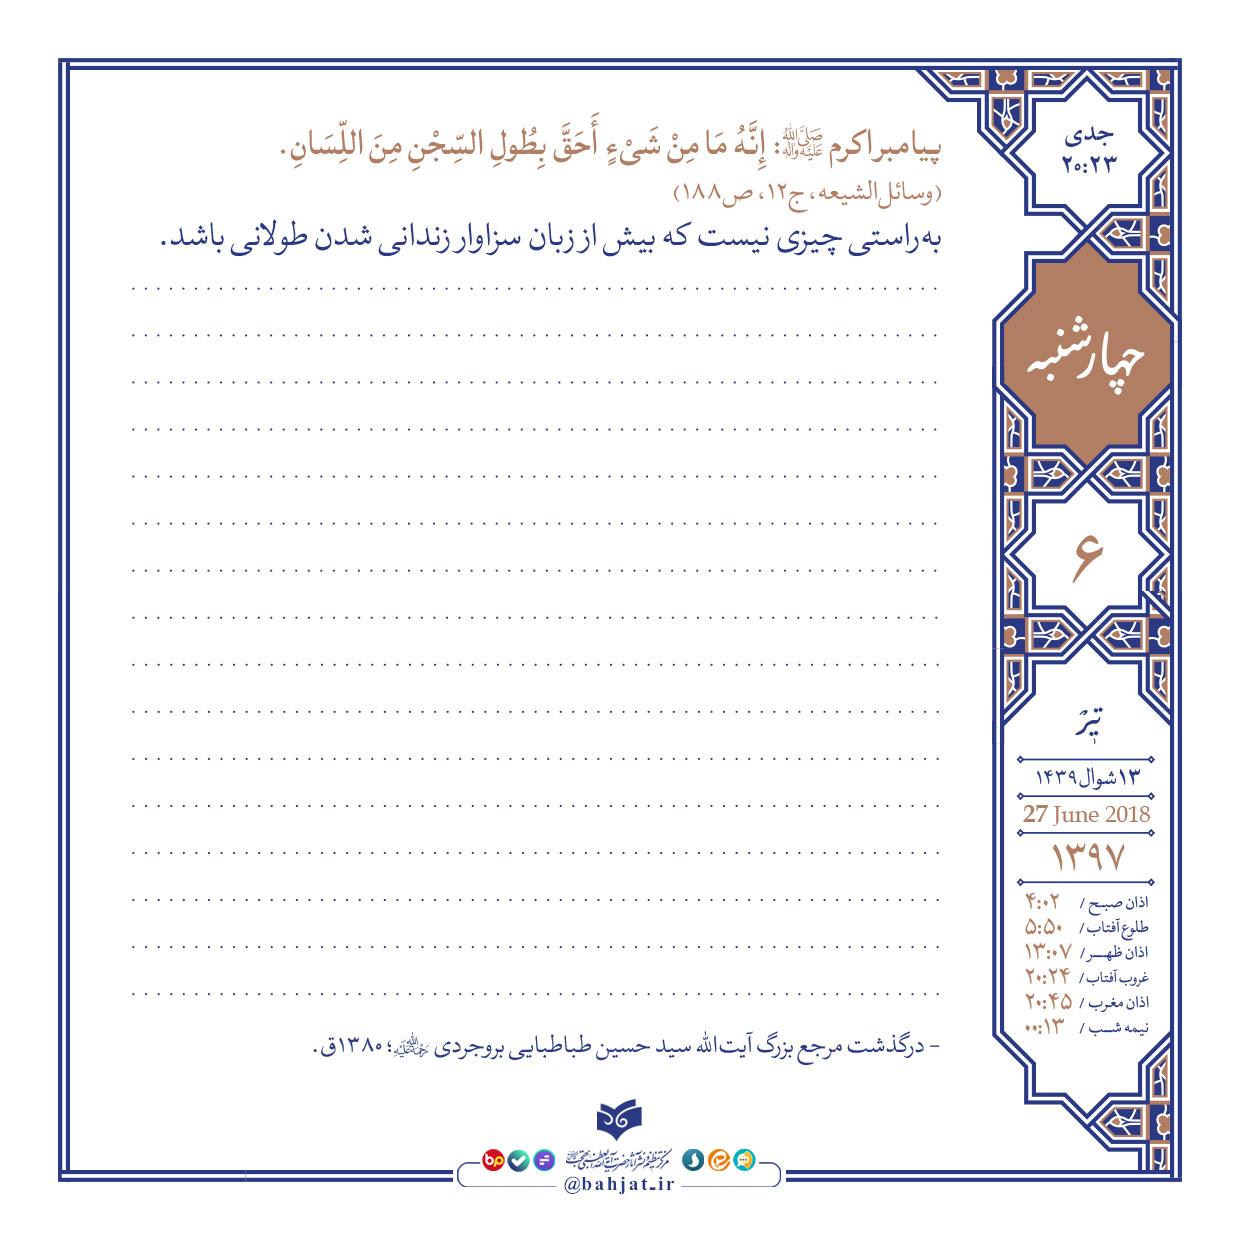 پیامبر اکرم ﷺ: إِنَّهُ مَا مِنْ شَیْءٍ أَحَقَّ بِطُولِ السِّجْنِ مِنَ اللِّسَانِ.
(وسائل‌الشیعه، ج۱۲، ص۱۸۸)
به‌راستی چیزی نیست که بیش از زبان سزاوار زندانی شدن طولانی باشد.
- درگذشت مرجع بزرگ آیت‌الله سید حسین طباطبایی بروجردی؛ ۱۳۸۰ق.
جدی
۲۰:۲۳
چهارشنبه
۶
تیر
۱۳ شوال ۱۴۳۹
27 June 2018
۱۳۹۷
اذان صبح / ۴:۰۲
طلوع آفتاب / ۵:۵۰
اذان ظهر / ۱۳:۰۷
غروب آفتاب / ۲۰:۲۴
اذان مغرب / ۲۰:۴۵
نیمه شب / ۰۰:۱۳
bp
@bahjat.ir